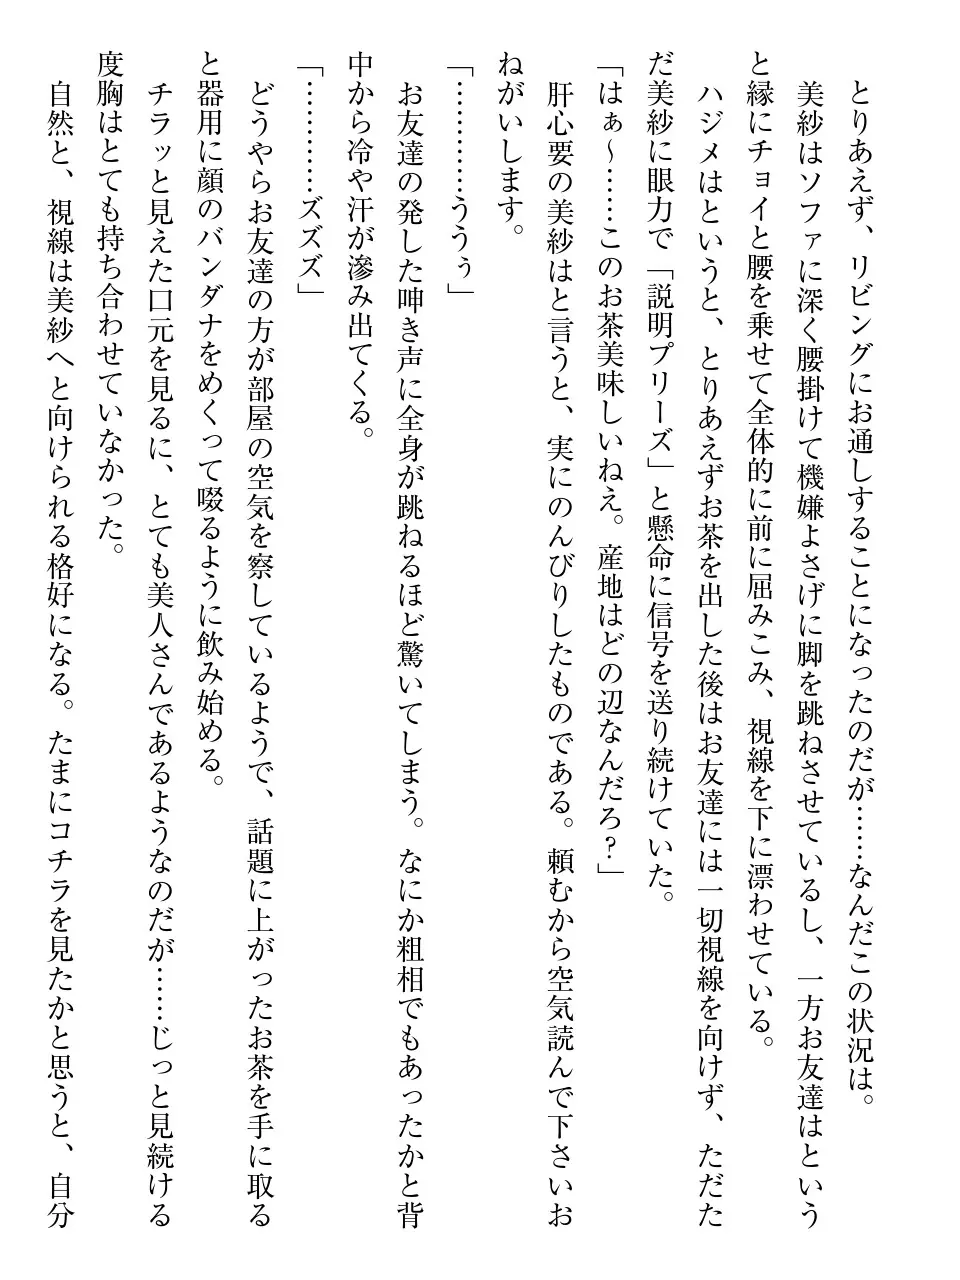 とりあえず、リビングにお通しすることになったのだが……なんだこの状況は。
美紗はソファに深く腰掛けて機嫌よさげに脚を跳ねさせているし、一方お友達はという
と縁にチョイと腰を乗せて全体的に前に屈みこみ、視線を下に漂わせている。
ハジメはというと、とりあえずお茶を出した後はお友達には一切視線を向けず、ただた
だ美紗に眼力で「説明プリーズ」と懸命に信号を送り続けていた。
「はぁ～……このお茶美味しいねえ。産地はどの辺なんだろ？」
肝心要の美紗はと言うと、実にのんびりしたものである。頼むから空気読んで下さいお
ねがいします。
「…………ううぅ」
お友達の発した呻き声に全身が跳ねるほど驚いてしまう。なにか粗相でもあったかと背
中から冷や汗が滲み出てくる。
「…………ズズズ」
どうやらお友達の方が部屋の空気を察しているようで、話題に上がったお茶を手に取る
と器用に顔のバンダナをめくって啜るように飲み始める。
チラッと見えた口元を見るに、とても美人さんであるようなのだが……じっと見続ける
度胸はとても持ち合わせていなかった。
自然と、視線は美紗へと向けられる格好になる。たまにコチラを見たかと思うと、自分